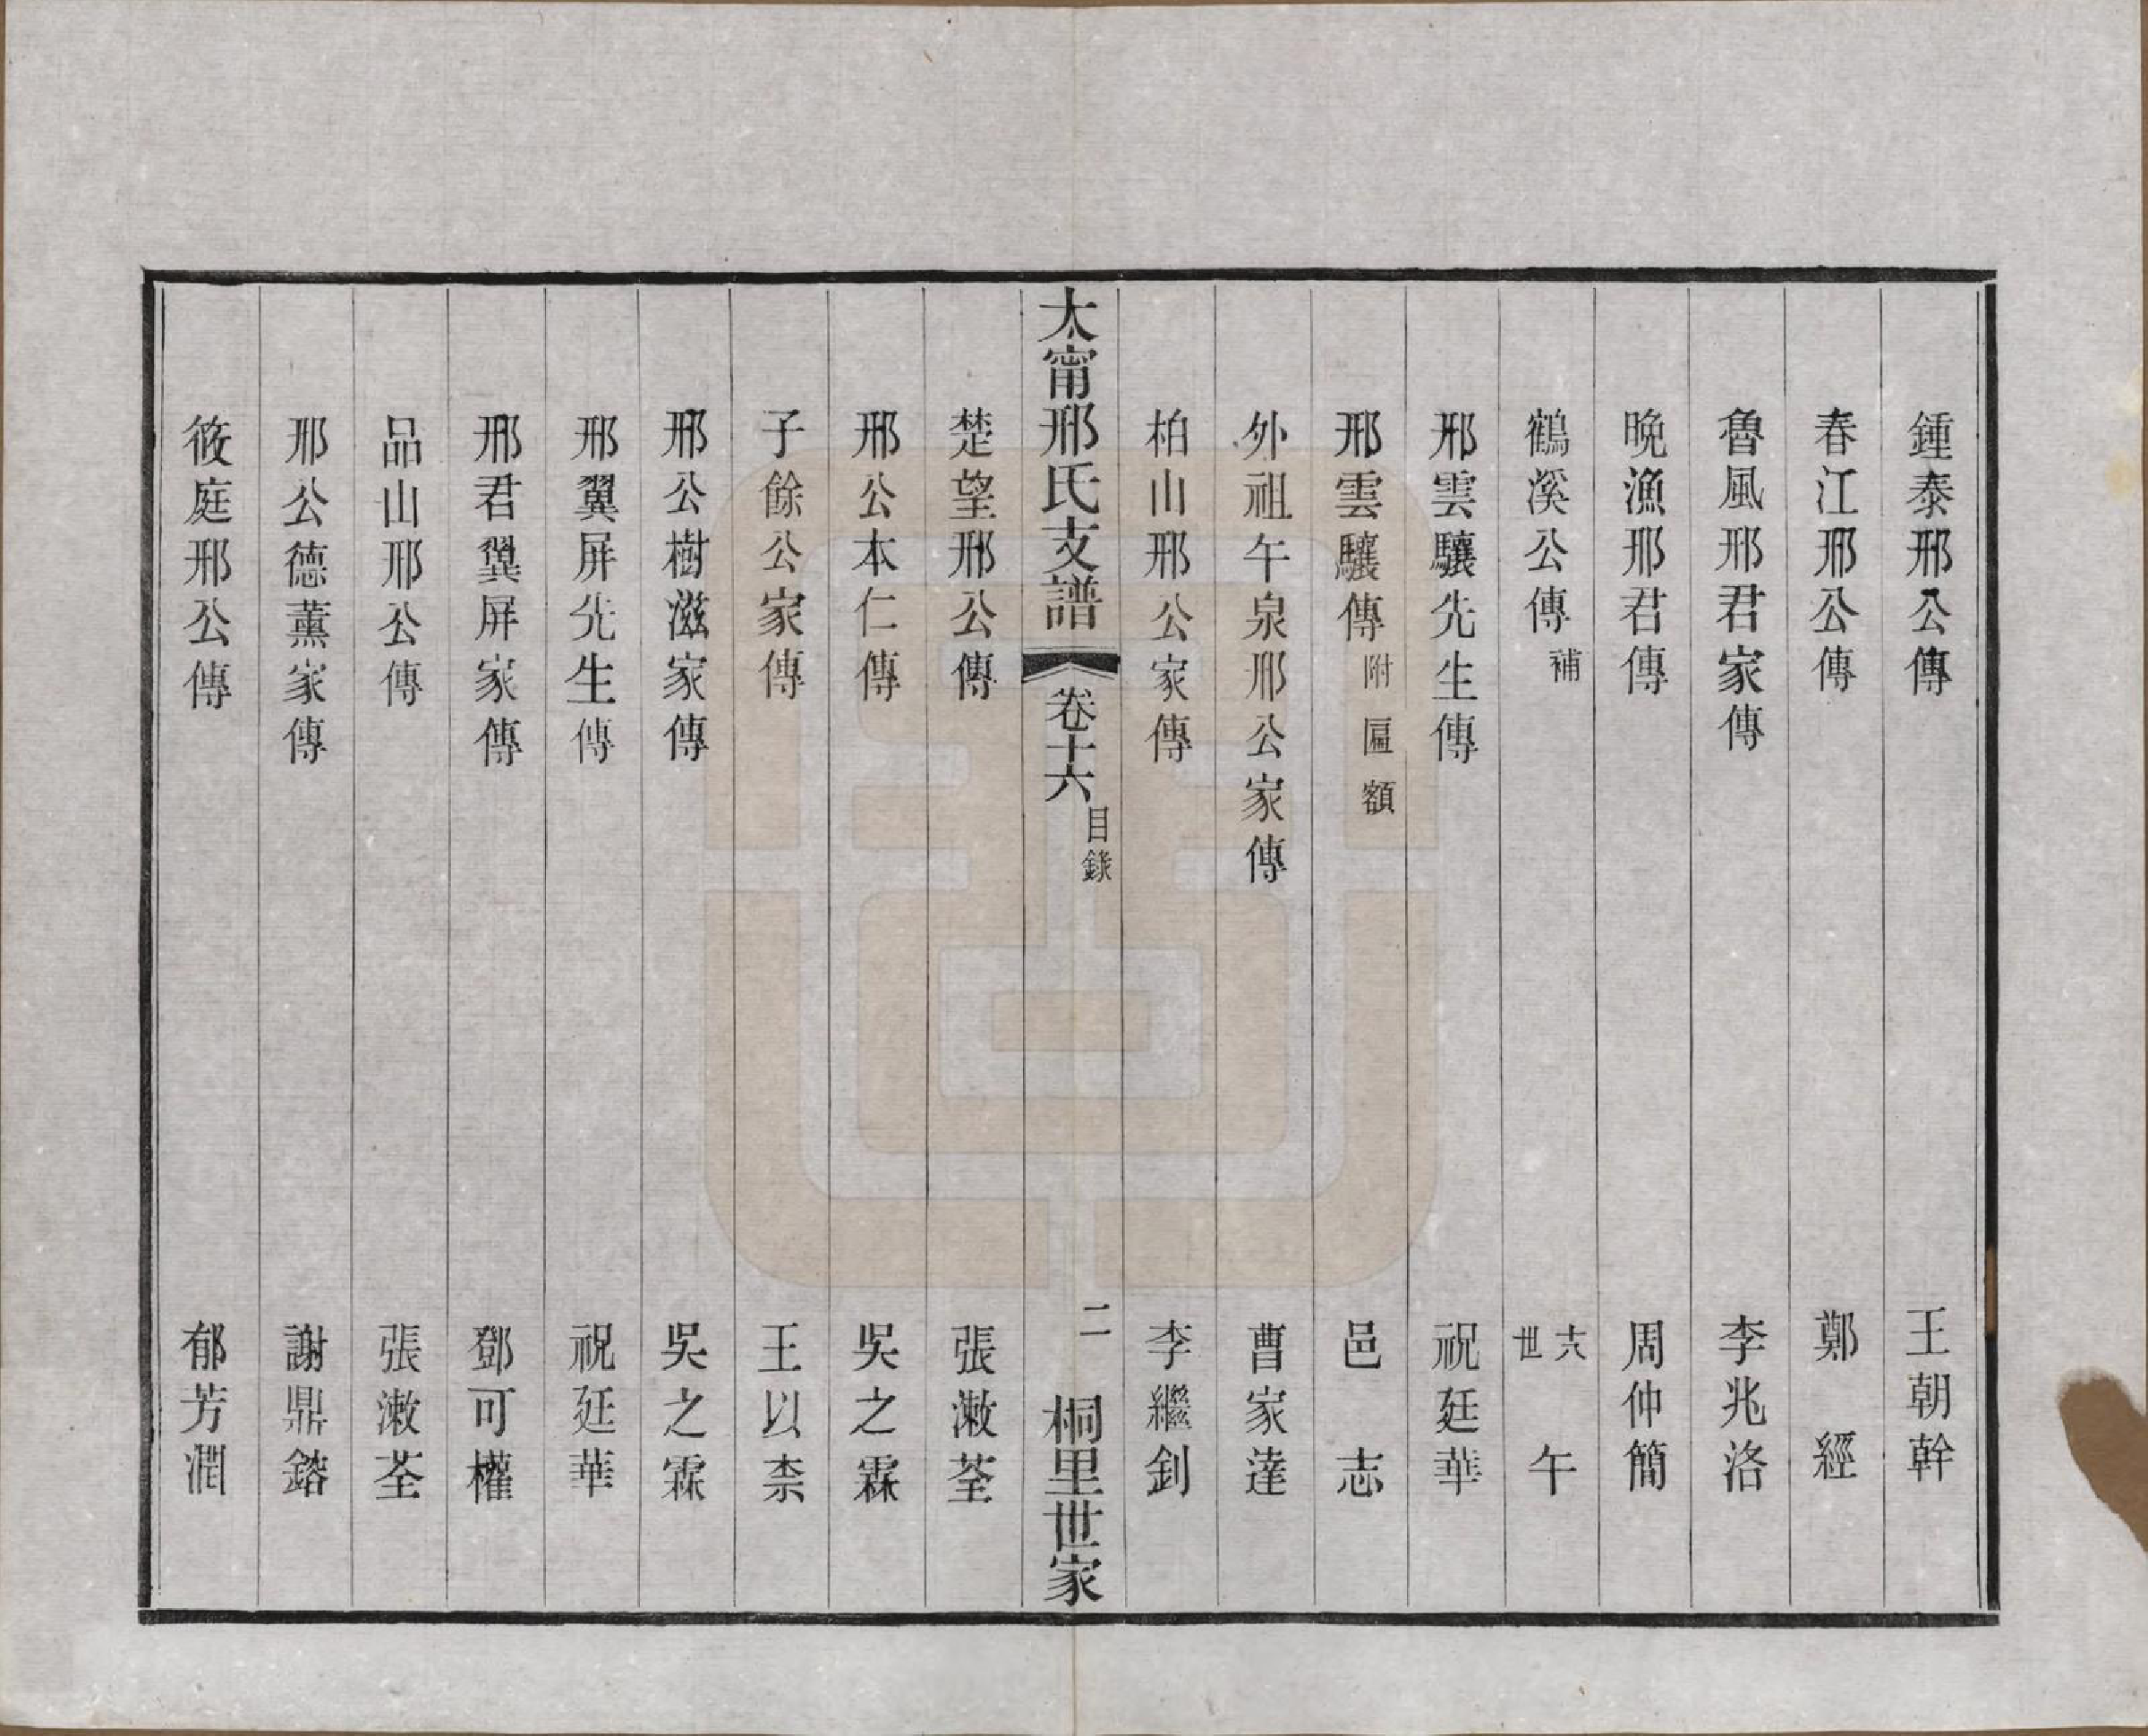 鍾泰邢公傳 王朝幹
春江邢公傳 鄭經
魯風邢君家傳 李兆洛
晚漁邢君傳 周仲簡
鶴溪公傳 補 六世 午
邢雲驤先生傳 祝廷華
邢雲驤傳 附匾額 邑志
外祖午泉邢公家傳 曹家達
柏山邢公家傳 李繼釗
太甯邢氏支譜 卷十六 目錄 二 桐里世家
楚望邢公傳 張漱荃
邢公本仁傳 吳之霖
子餘公家傳 王以柰
邢公樹滋家傳 吳之霖
邢翼屏先生傳 祝廷華
邢君翼屏家傳 鄧可權
品山邢公傳 張漱荃
邢公德薰家傳 謝鼎鎔
筱庭邢公傳 郁芳潤